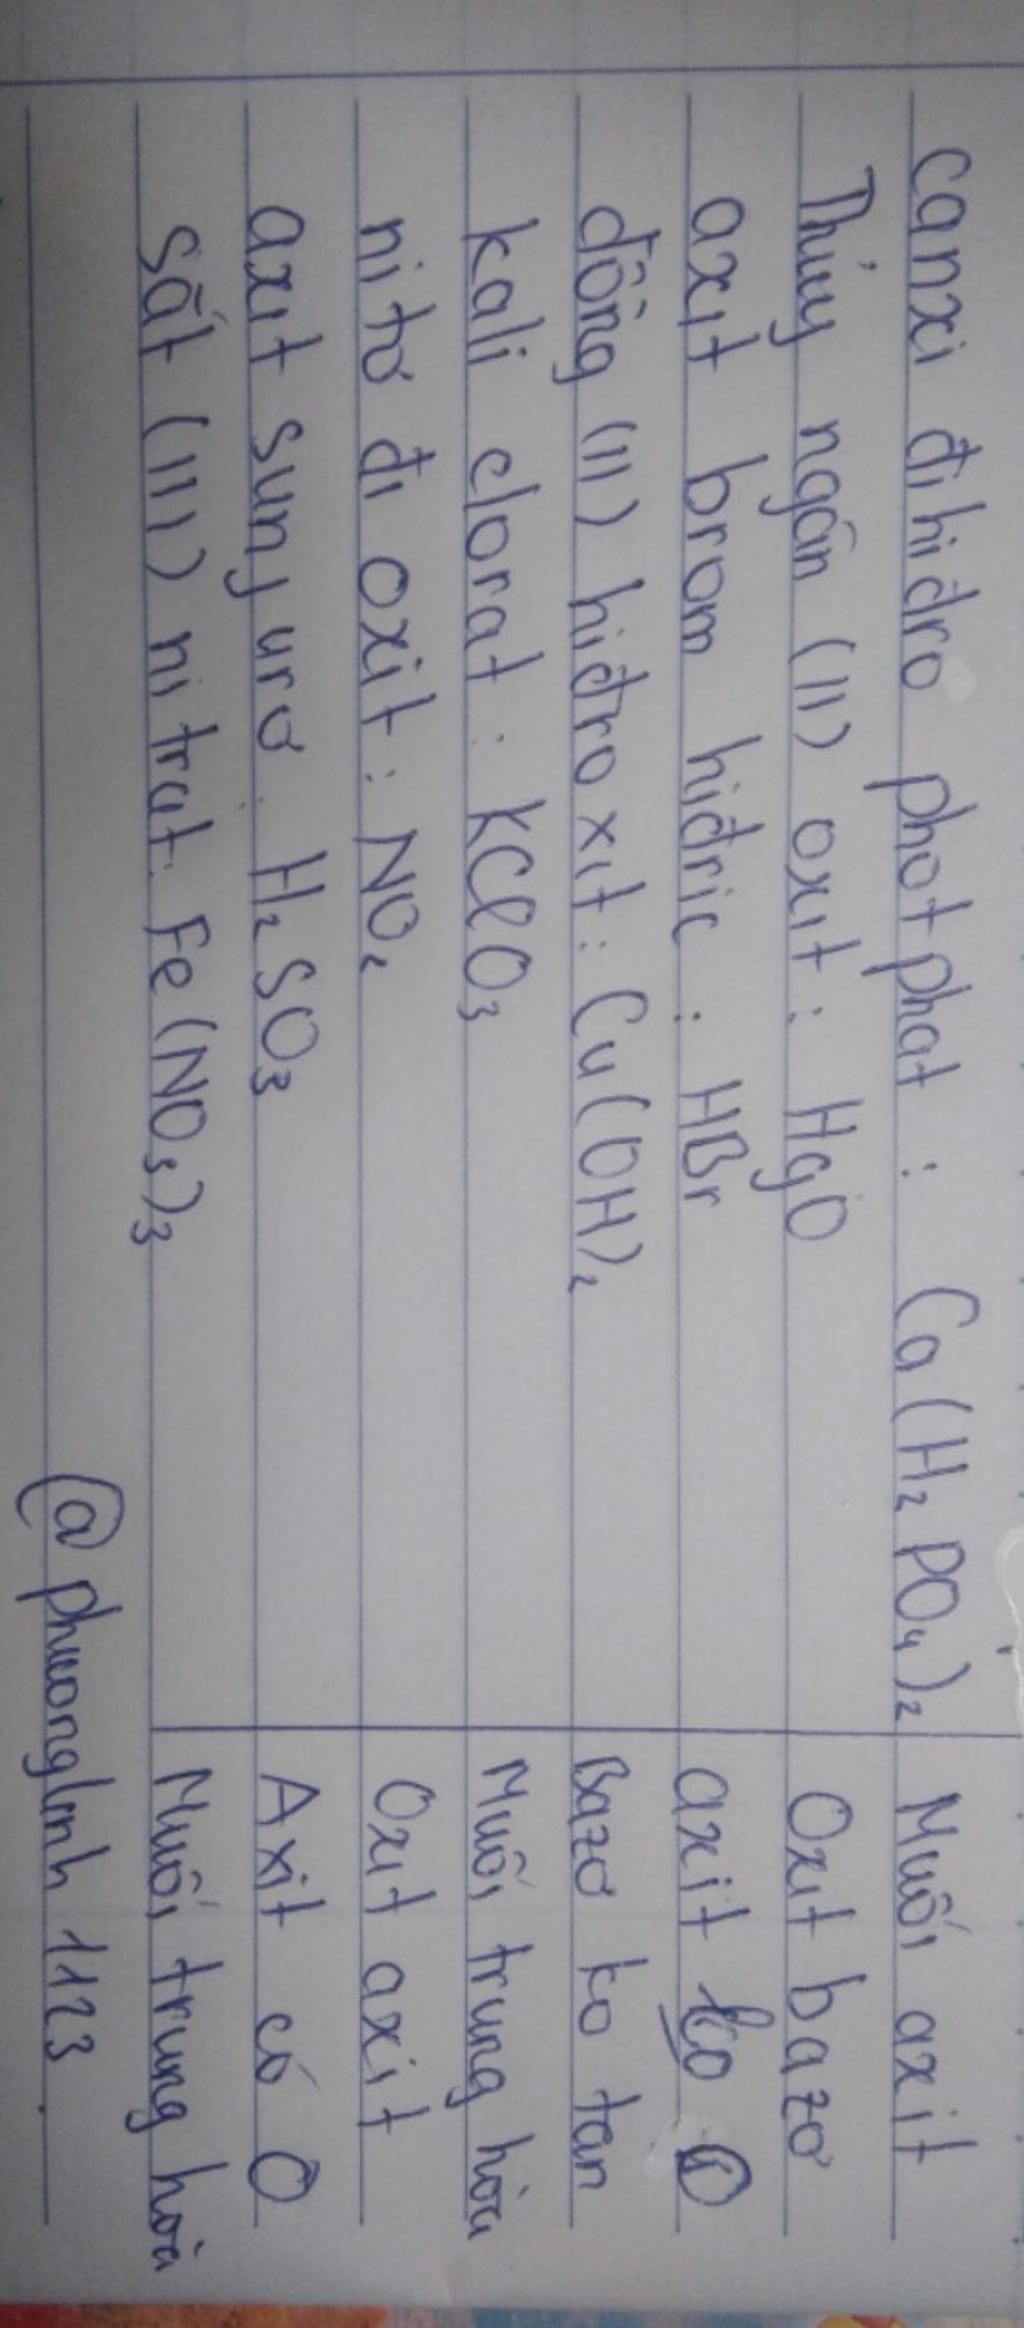 canxi đihiđro photphat : Ca(H₂PO₄)₂ Muối axit
Thủy ngân (II) oxit : HgO Oxit bazơ
axit brom hiđric : HBr axit ko O
đồng (II) hiđroxit : Cu(OH)₂ Bazơ ko tan
kali clorat : KClO₃ Muối trung hòa
nitơ đi oxit : NO₂ Oxit axit
axit sunfurơ : H₂SO₃ Axit có O
sắt (III) nitrat : Fe(NO₃)₃ Muối trung hoà
@phuonglinh1123